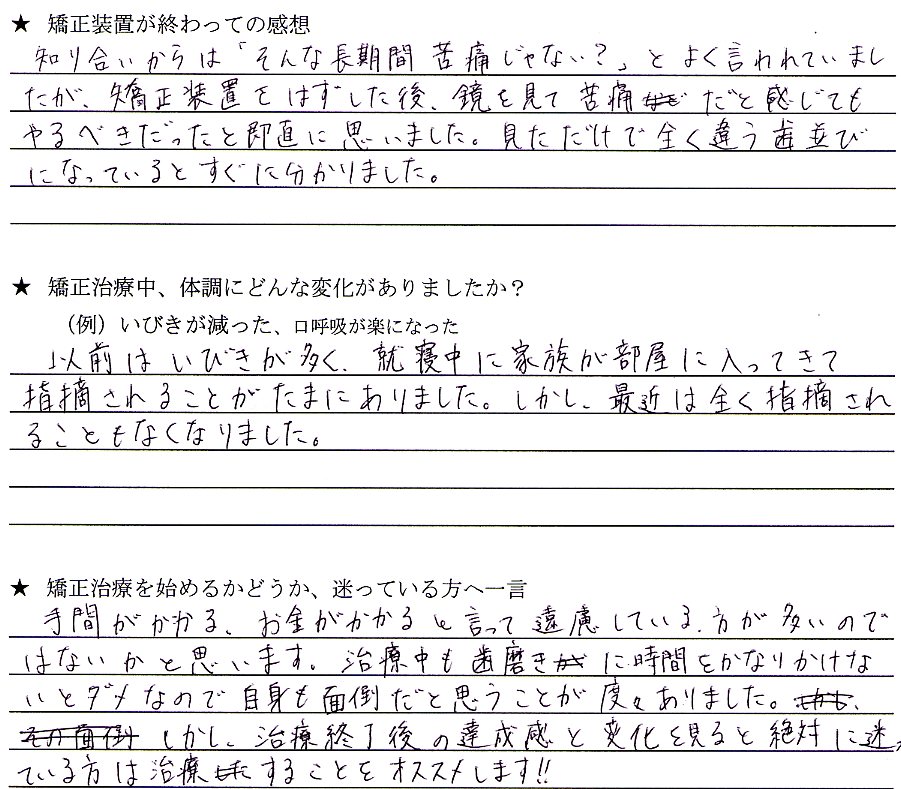 ★ 矯正装置が終わっての感想
知り合いからは「そんな長期間 苦痛じゃない?」とよく言われていまし
たが、矯正装置をはずした後、鏡を見て苦痛だと感じても
やるべきだったと即直に思いました。見ただけで全く違う歯並び
になっているとすぐに分かりました。
★ 矯正治療中、体調にどんな変化がありましたか?
(例)いびきが減った、口呼吸が楽になった
以前はいびきが多く、就寝中に家族が部屋に入ってきて
指摘されることがたまにありました。しかし、最近は全く指摘され
ることもなくなりました。
★ 矯正治療を始めるかどうか、迷っている方へ一言
手間がかかる、お金がかかると言って遠慮している、方が多いので
はないかと思います。治療中も歯磨きに時間をかなりかけな
いとダメなので自身も面倒だと思うことが度々ありました。
しかし、治療終了後の達成感と変化を見ると絶対に迷っ
ている方は治療することをオススメします!!